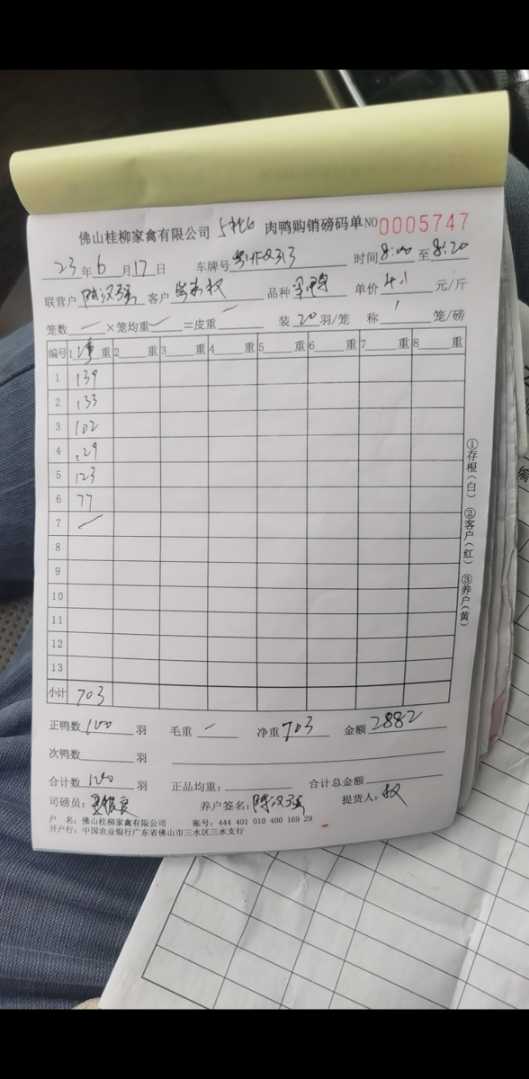 佛山桂柳家禽有限公司 肉鸭购销磅码单 NO 0005747
23年6月17日 车牌号 时间8:00至8:20
联营户 陈汉强 客户 品种 单价 4.1 元/斤
笼数 一 ×笼均重 =皮重 装 20 羽/笼 称 1 笼/磅
编号 1 净 重 2 重 3 重 4 重 5 重 6 重 7 重 8 重
1 139
2 133
3 102
4 129
5 123
6 77
7
8
9
10
11
12
13
小计 703
正鸭数 100 羽 毛重 一 净重 703 金额 2882
次鸭数 羽
合计数 100 羽 正品均重： 合计总金额
司磅员： 养户签名：陈汉强 提货人：权
户 名：佛山桂柳家禽有限公司 账号：444 401 010 400 169 29
开户行：中国农业银行广东省佛山市三水区三水支行
①存根（白） ②客户（红） ③养户（黄）